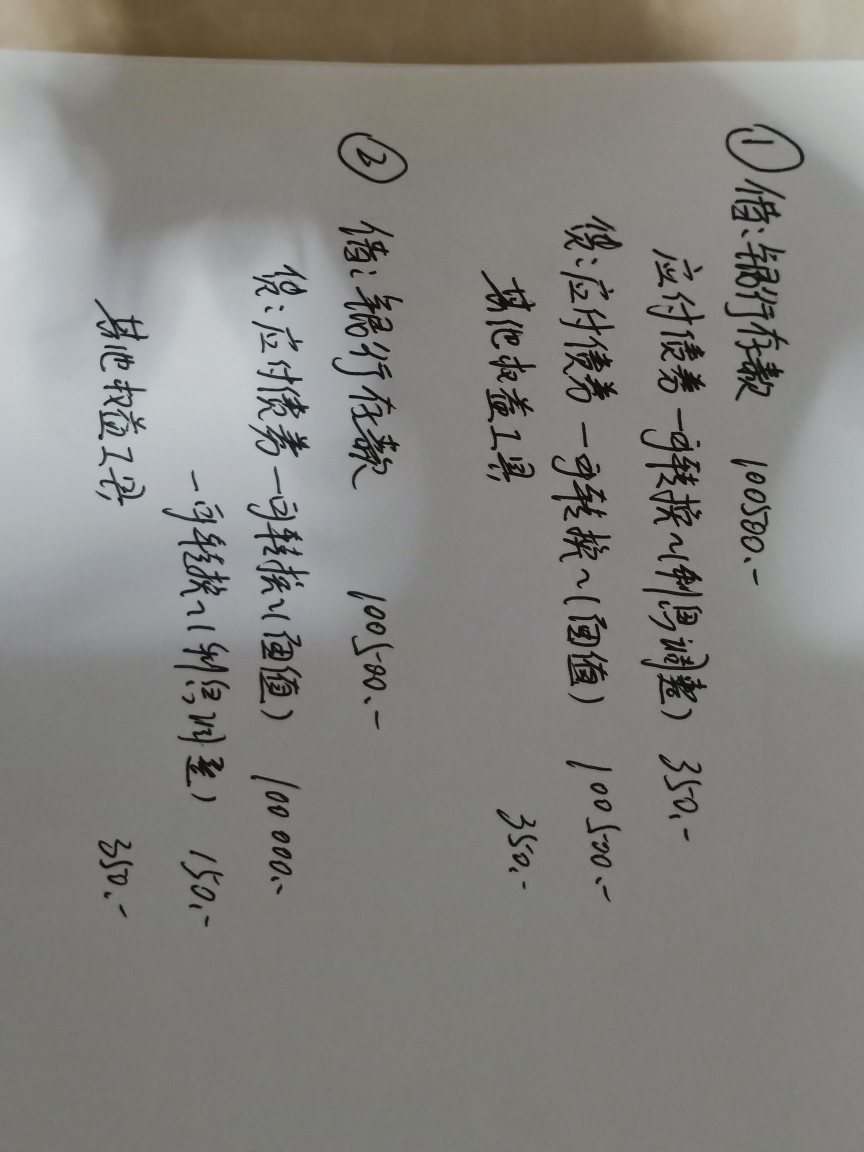 ① 借:银行存款 100500.-
应付债券-可转换~(利息调整) 350.-
贷:应付债券-可转换~(面值) 100500.-
其他权益工具 350.-
② 借:银行存款 100500.-
贷:应付债券-可转换~(面值) 100000.-
-可转换~(利息调整) 150.-
其他权益工具 350.-